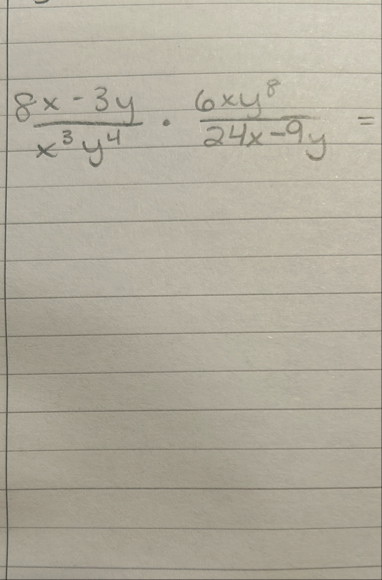 8x - 3y / x³y⁴ · 6xy⁸ / 24x-9y =